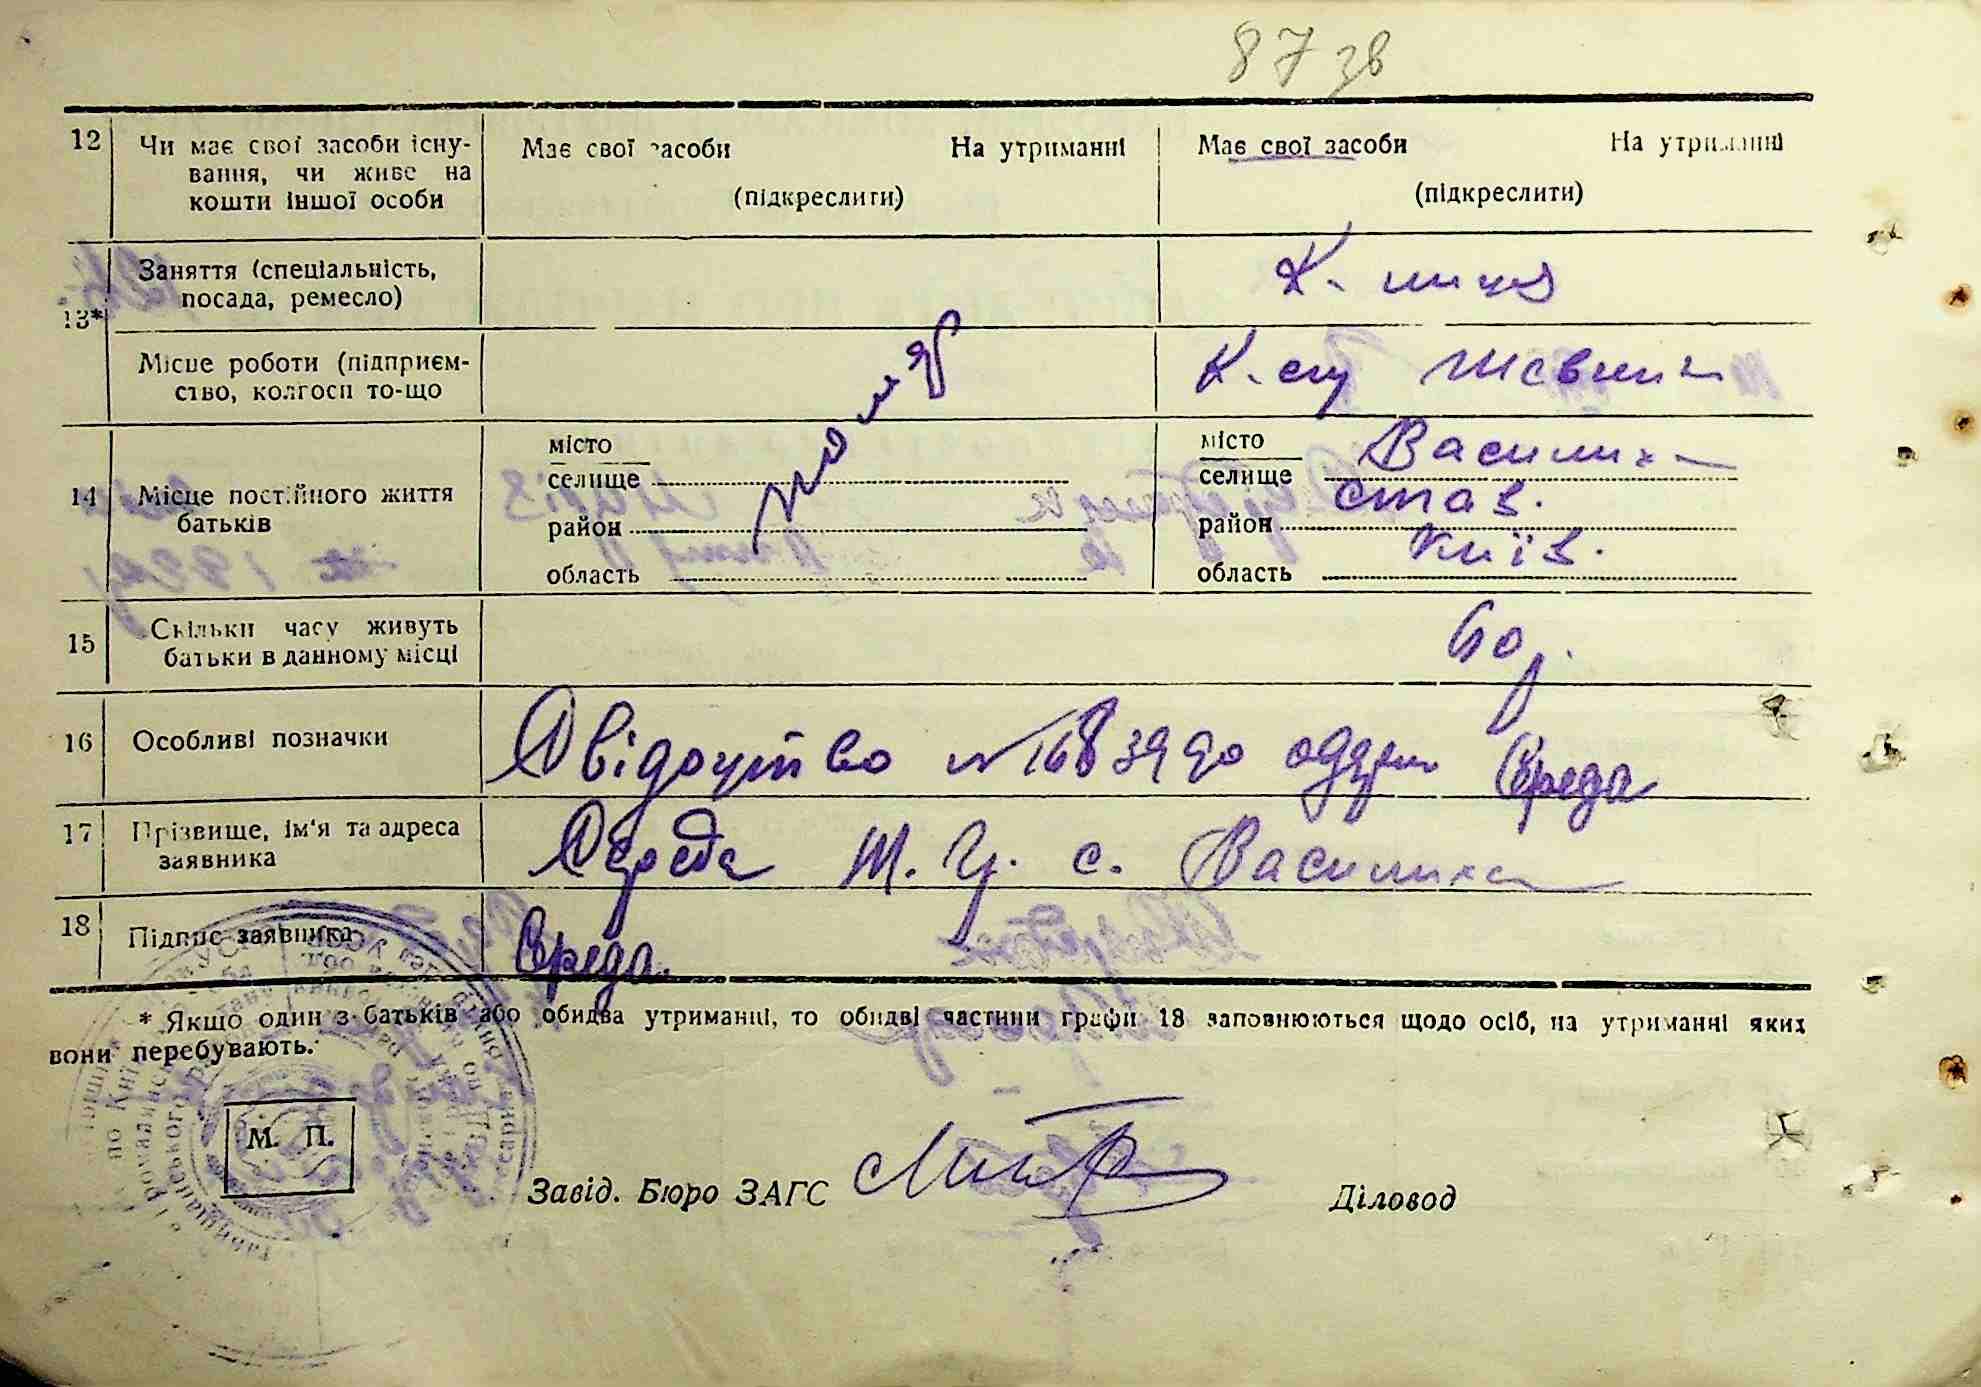 87 зв
12 Чи має свої засоби існу-
вання, чи живе на
кошти іншої особи
Має свої засоби На утриманні
(підкреслити)
Має свої засоби На утриманні
(підкреслити)
13*
Заняття (спеціальність,
посада, ремесло)
К-ниця
Місце роботи (підприєм-
ство, колгосп то-що
помер
14 Місце постійного життя
батьків
місто
селище
район
область
місто
селище Василиха
район став.
область Київ.
15 Скільки часу живуть
батьки в данному місці
16 Особливі позначки
Свідоцтво № 1683990 одерж Середа
17 Прізвище, ім'я та адреса
заявника
Середа с. Василиха
18 Підпис заявника
Середа
* Якщо один з батьків або обидва утриманні, то обидві частини графи 18 заповнюються щодо осіб, на утриманні яких
вони перебувають.
М. П.
Завід. Бюро ЗАГС
Діловод